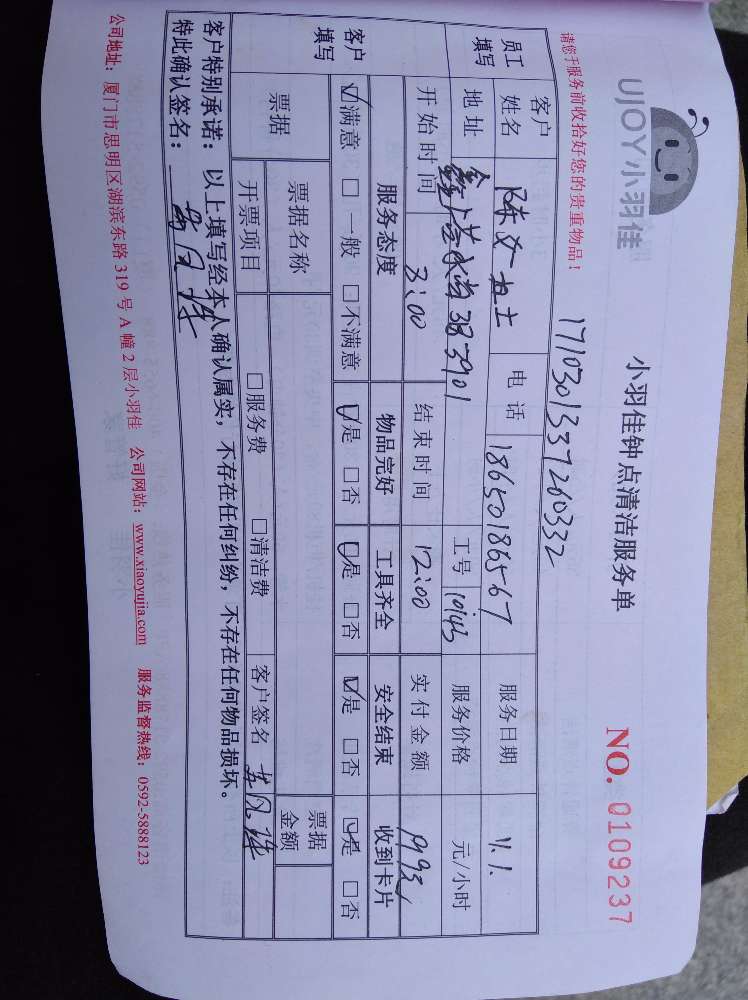 UJOY小羽佳
小羽佳钟点清洁服务单
NO. 0109237
请您于服务前收拾好您的贵重物品！
1710301337260332
员工填写
客户姓名 陈女士 电话 18650186567 服务日期 11.1.
地址 38-3901 工号 10143 服务价格 元/小时
开始时间 3:00 结束时间 12:00 实付金额
客户填写
服务态度 物品完好 工具齐全 安全结束 收到卡片
☑满意 □一般 □不满意 ☑是 □否 ☑是 □否 ☑是 □否 ☑是 □否
票据 票据名称 票据金额
开票项目 □服务费 □清洁费 客户签名
客户特别承诺：以上填写经本人确认属实，不存在任何纠纷，不存在任何物品损坏。
特此确认签名：
公司地址：厦门市思明区湖滨东路 319 号 A 幢 2 层小羽佳 公司网站：www.xiaoyujia.com 服务监督热线：0592-5888123